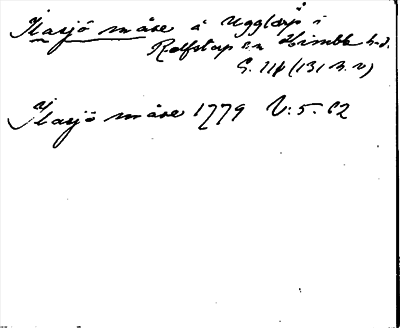 Ilasjö måse å Ugglarp i
Rolfstorp sn Himble hd.
S. 114 (131 n. v)
Ilasjö måse 1779 V: 5. 62